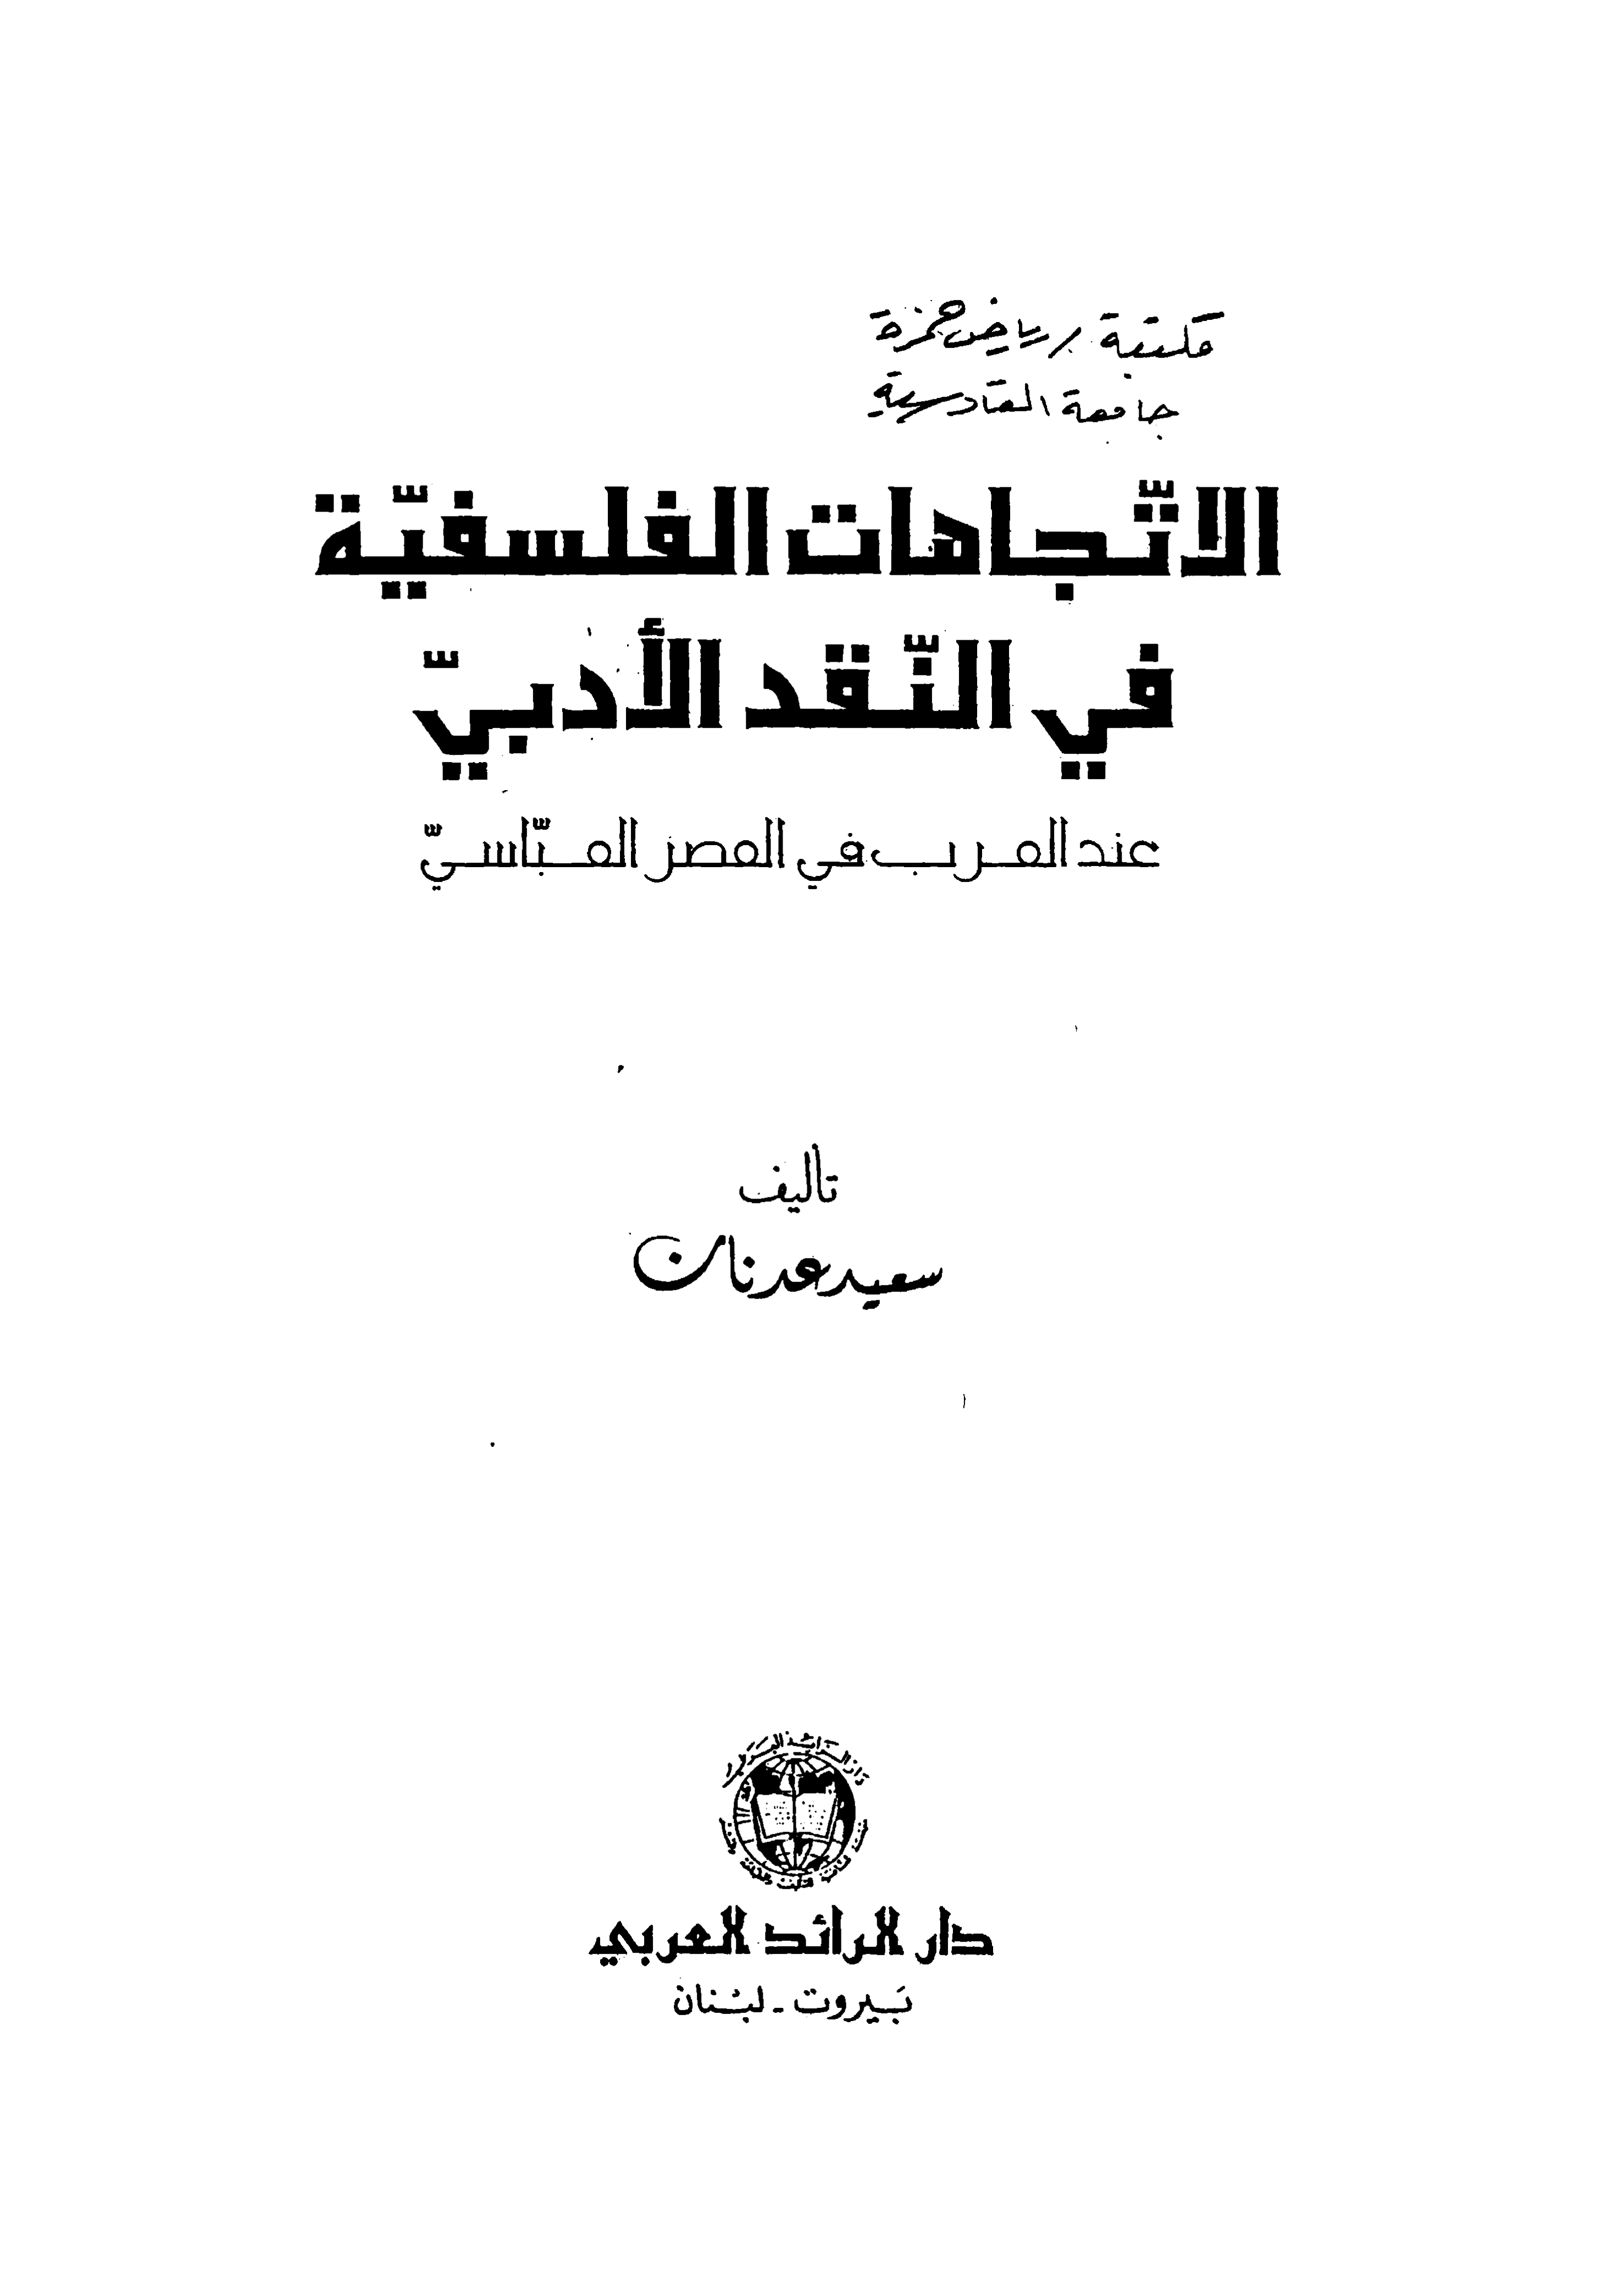 مكتبة رياض حمزة
جامعة القادسية
الاتّجاهات الفلسفيّة
في النّقد الأدبيّ
عند العرب في العصر العبّاسيّ
تأليف
سعيد عدنان
دار الرائد العربي
بَيروت - لبْنان